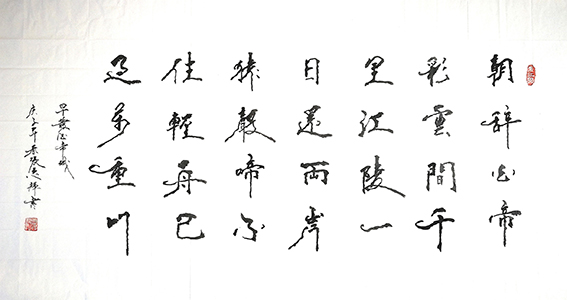 朝辞白帝
彩雲間千
里江陵一
日還兩岸
猿聲啼不
住輕舟已
過萬重山
早發白帝城
庚子年書